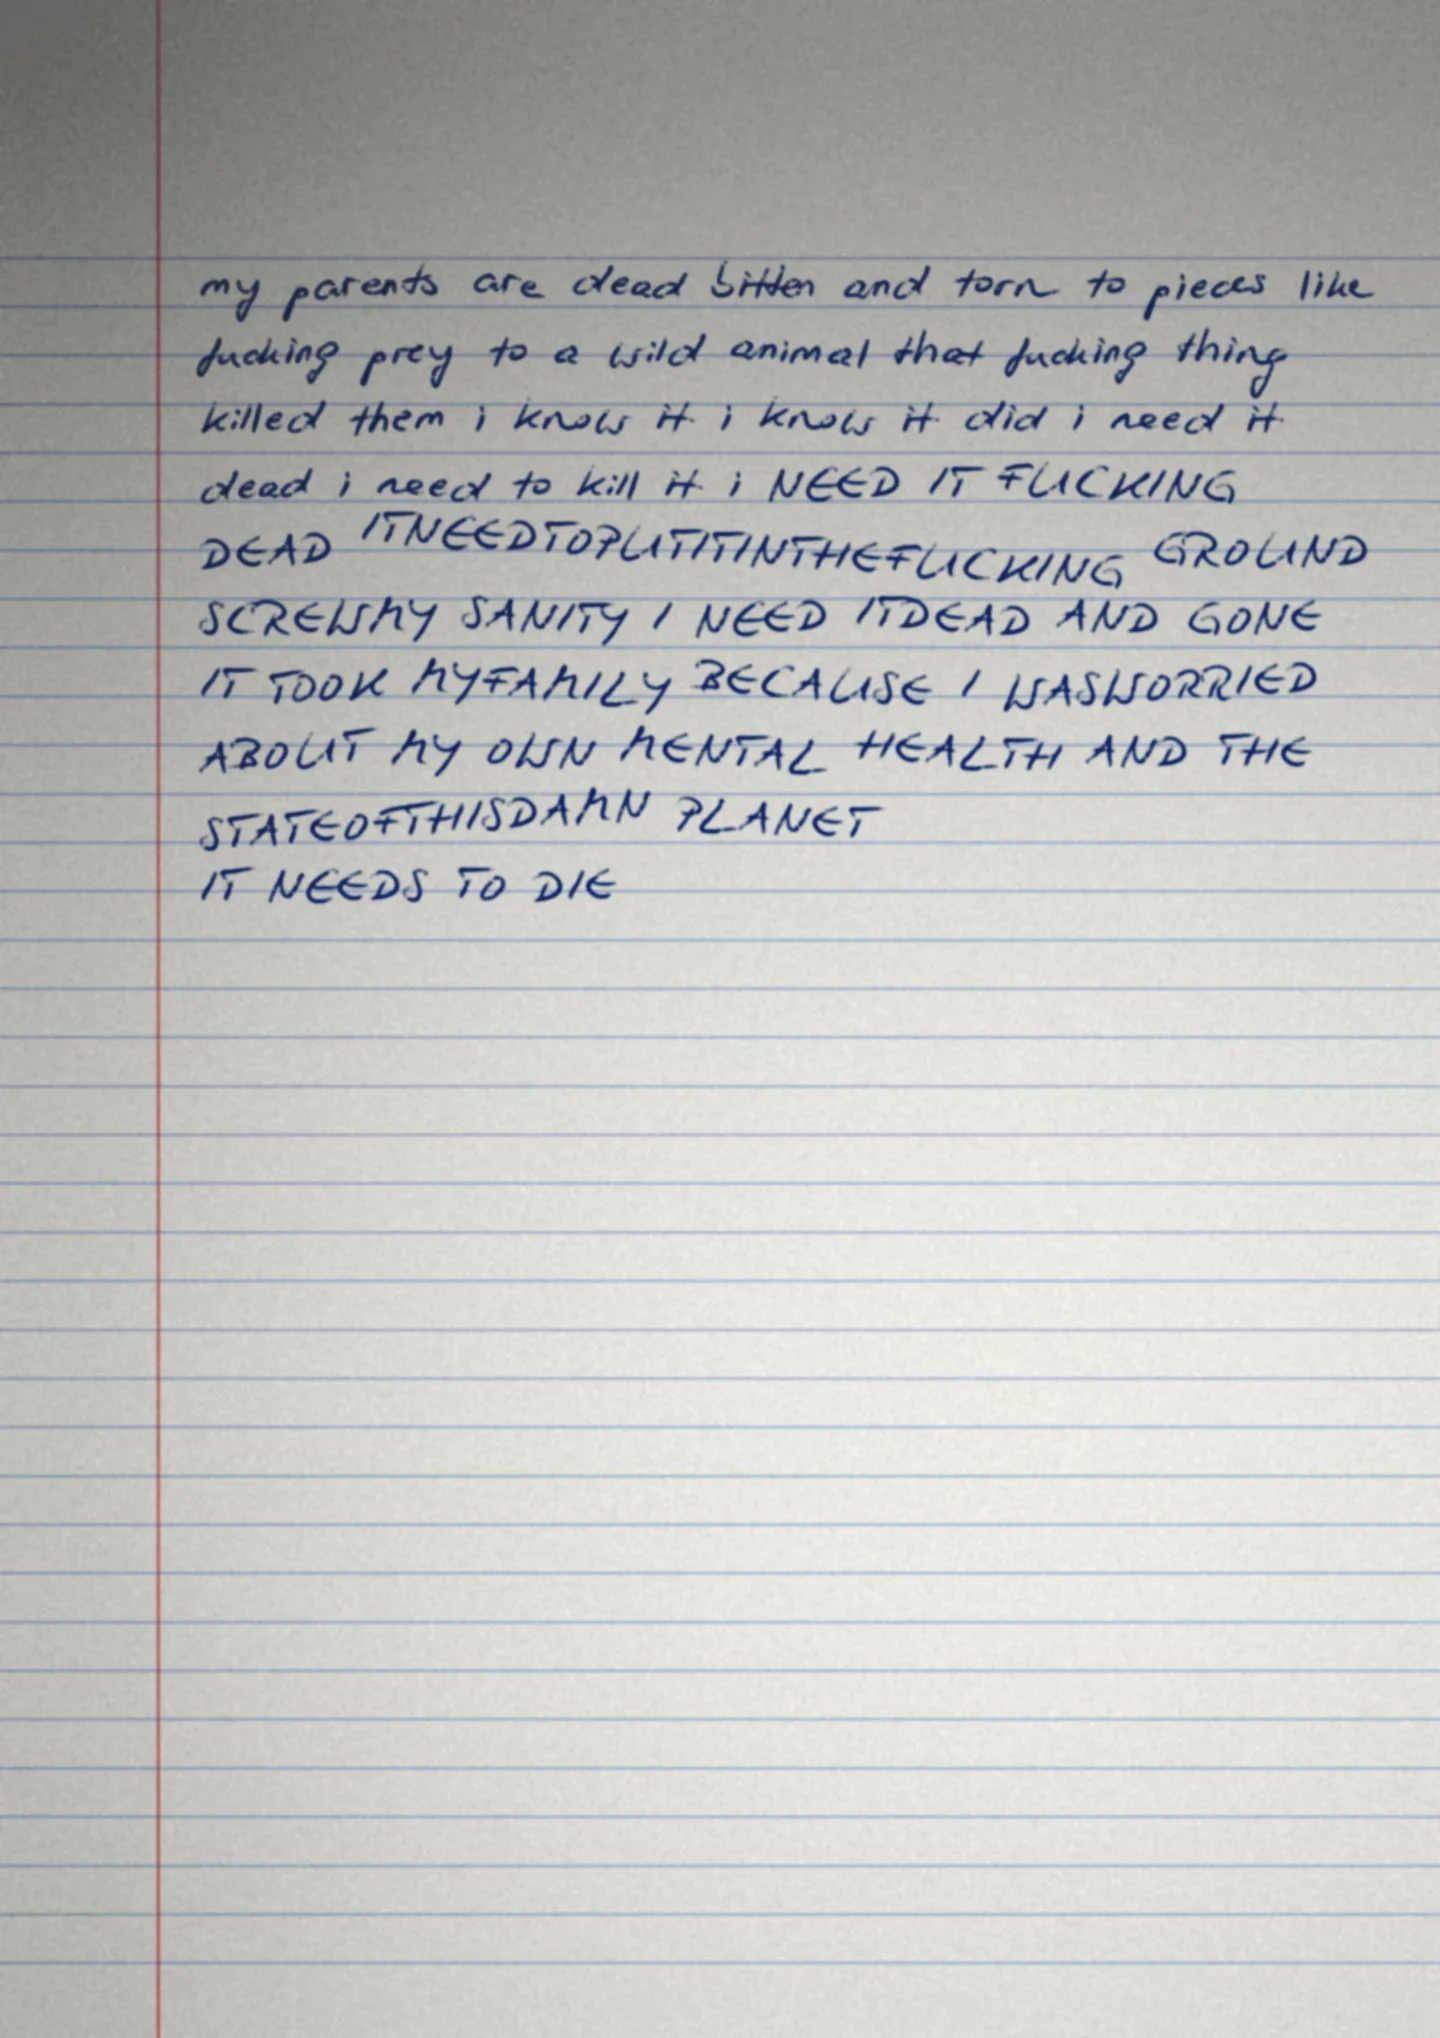 my parents are dead bitten and torn to pieces like
fucking prey to a wild animal that fucking thing
killed them i know it i know it did i need it
dead i need to kill it i NEED IT FUCKING
DEAD ITNEEDTOPUTITINTHEFUCKING GROUND
SCREWMY SANITY I NEED ITDEAD AND GONE
IT TOOK MYFAMILY BECAUSE I WASWORRIED
ABOUT MY OWN MENTAL HEALTH AND THE
STATEOFTHISDAMN PLANET
IT NEEDS TO DIE